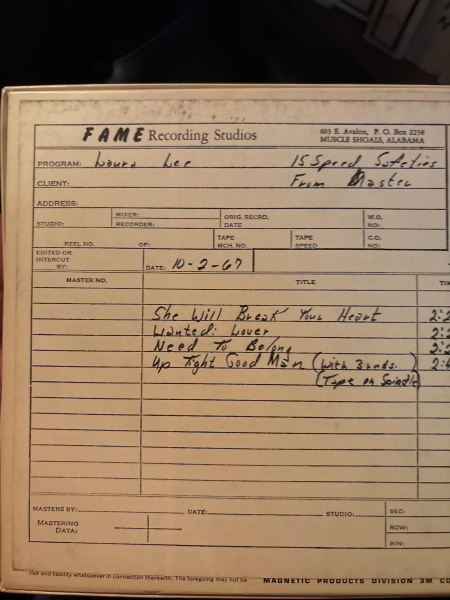 FAME Recording Studios
603 E. Avalon, P. O. Box 2238
MUSCLE SHOALS, ALABAMA
PROGRAM: Laura Lee 15 Speed Safeties
CLIENT: From Master
ADDRESS:
STUDIO: MIXER: RECORDER: ORIG. RECRD. DATE W.O. NO:
REEL NO. OF: TAPE MCH. NO. TAPE SPEED C.O. NO:
EDITED OR INTERCUT BY: DATE: 10-2-67
MASTER NO. TITLE
She Will Break Your Heart 2:2
Wanted: Lover 2:2
Need To Belong 2:2
Up Tight Good Man (With 3 ends.
(Tape on Spindle)
MASTERS BY: DATE: STUDIO: SEC:
MASTERING DATA: ROW:
BIN:
risk and liability whatsoever in connection therewith. The foregoing may not be MAGNETIC PRODUCTS DIVISION 3M CO